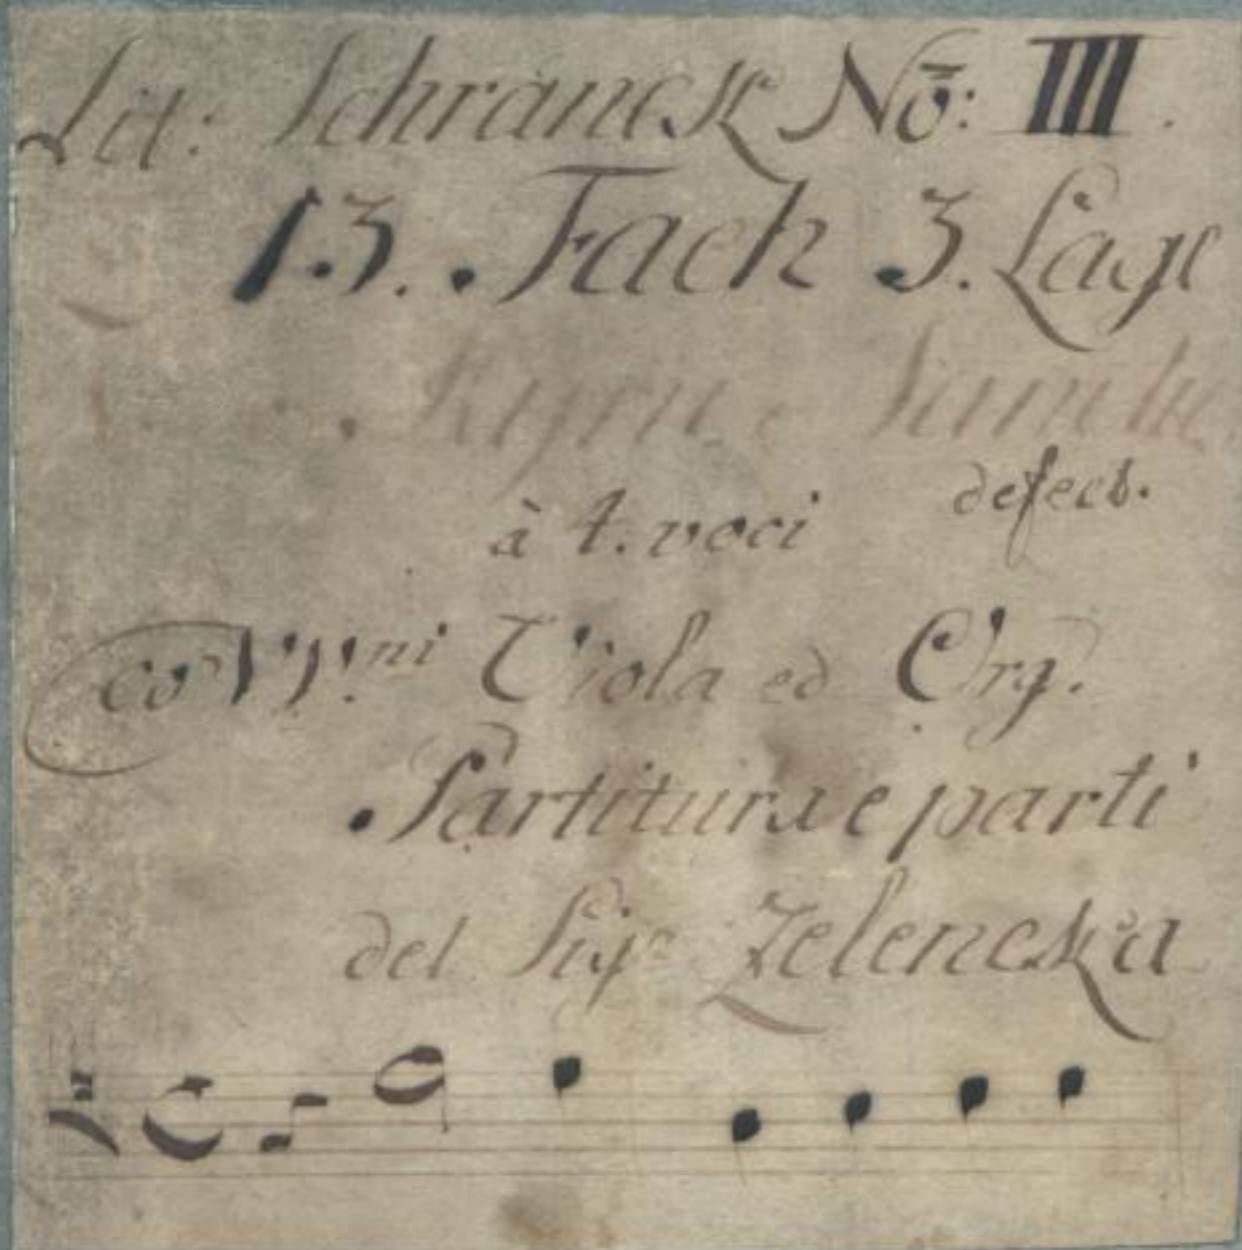 Lit: Schranck No: III.
13. Fach 3. Lage
Kyrie e
defect.
à 4. voci
co VV.ni Viola ed Org.
Partitura e parti
del Sigr Zelencka